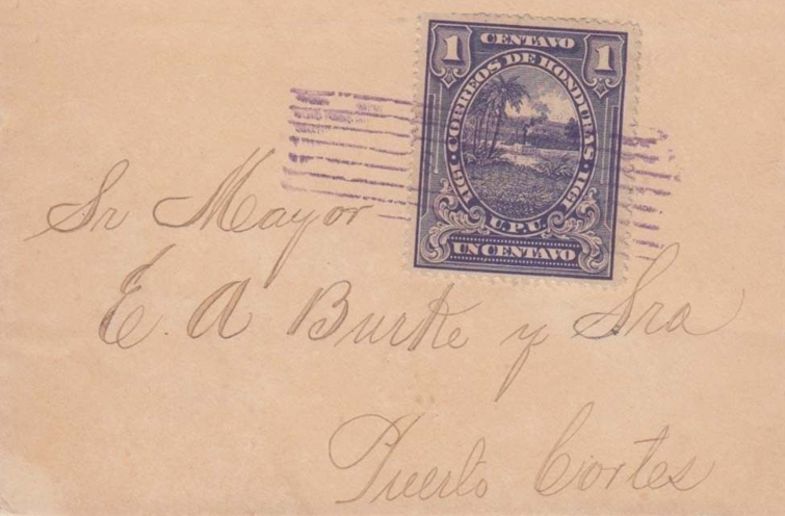 1 CENTAVO 1
CORREOS DE HONDURAS
1911 1911
U.P.U.
UN CENTAVO
Sr Mayor
E. A Burke y Sra
Puerto Cortes